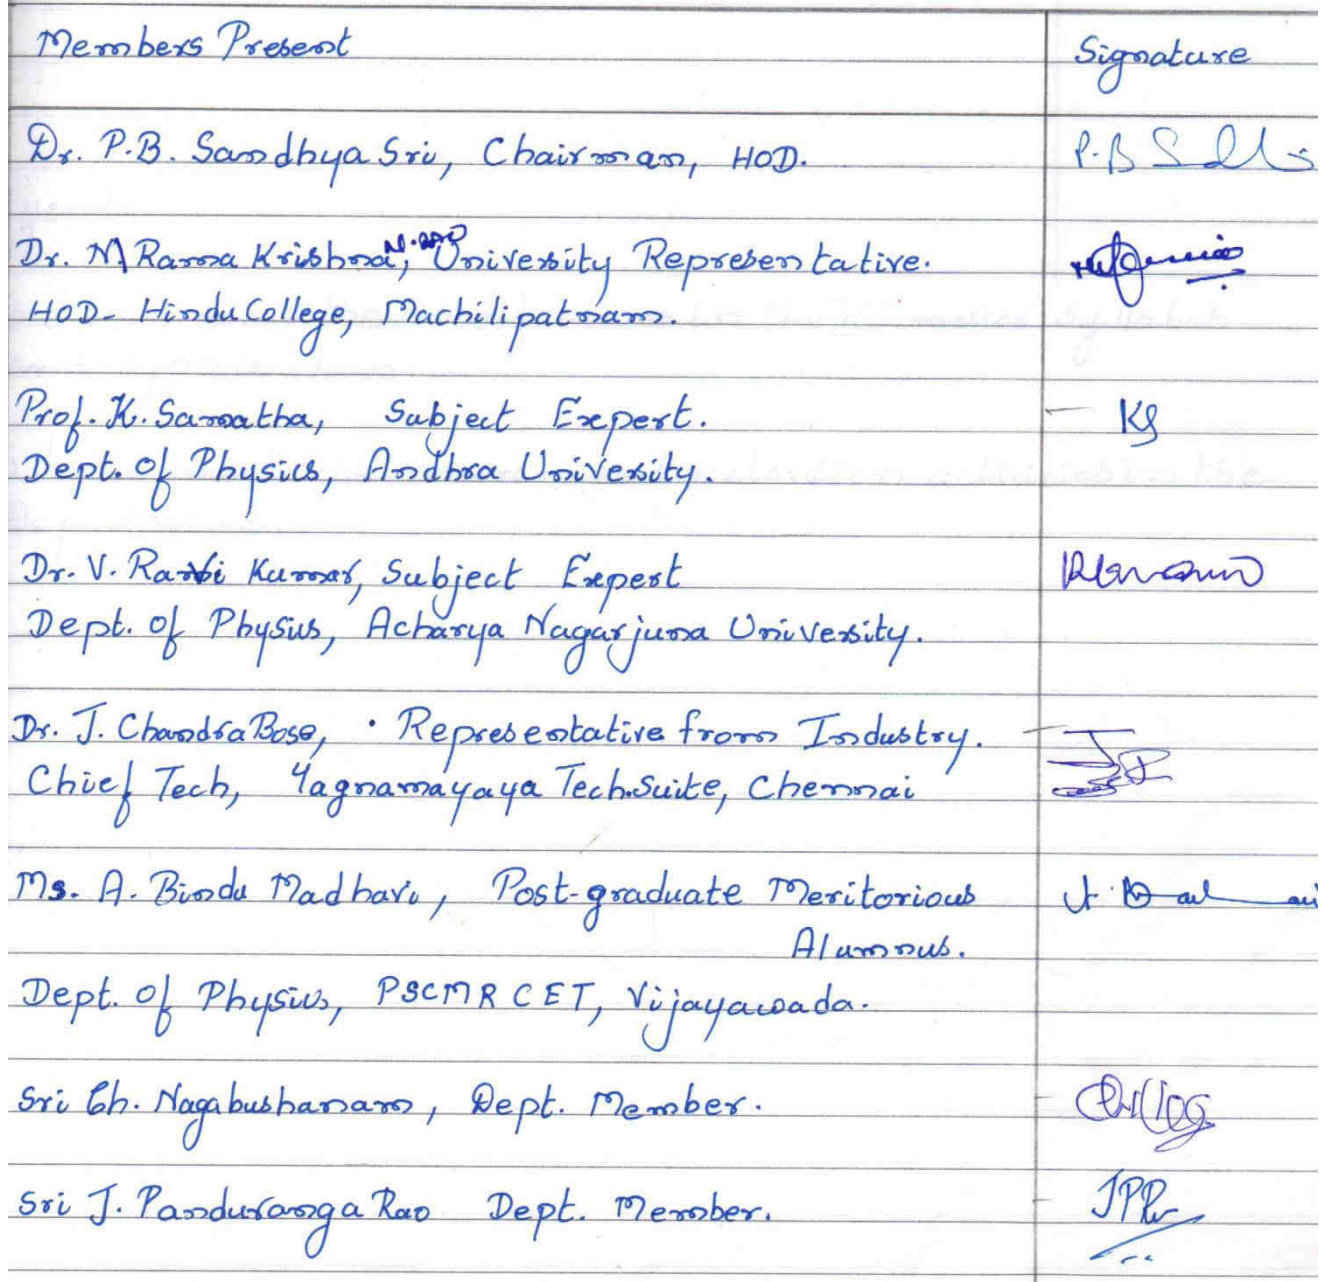 Members Present Signature
Dr. P.B. Sandhya Sri, Chairman, HOD. P.B S
Dr. N Rama Krishna, University Representative.
HOD- Hindu College, Machilipatnam.
Prof. K. Samatha, Subject Expert. KS
Dept. of Physics, Andhra University.
Dr. V. Ravi Kumar, Subject Expert
Dept. of Physics, Acharya Nagarjuna University.
Dr. J. Chandra Bose, Representative from Industry.
Chief Tech, Yagnamayaya Tech.Suite, Chennai
Ms. A. Bindu Madhavi, Post-graduate Meritorious
Alumnus.
Dept. of Physics, PSCMR CET, Vijayawada.
Sri Ch. Nagabushanam, Dept. Member.
Sri J. Panduranga Rao Dept. Member. JPR